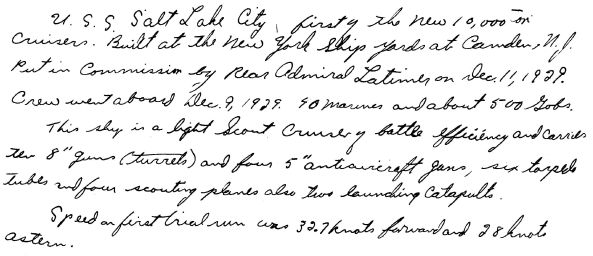 U. S. S. Salt Lake City, first of the new 10,000 ton
Cruisers. Built at the New York Ship yards at Camden, N.J.
Put in Commission by Rear Admiral Latimer on Dec. 11, 1929.
Crew went aboard Dec. 9, 1929. 40 marines and about 500 Gobs.
This ship is a light Scout Cruiser of battle efficiency and carries
ten 8" guns (turrets) and four 5" antiaircraft guns, six torpedo
tubes and four scouting planes also two launching Catapults.
Speed on first trial run was 32.7 knots forward and 28 knots
astern.